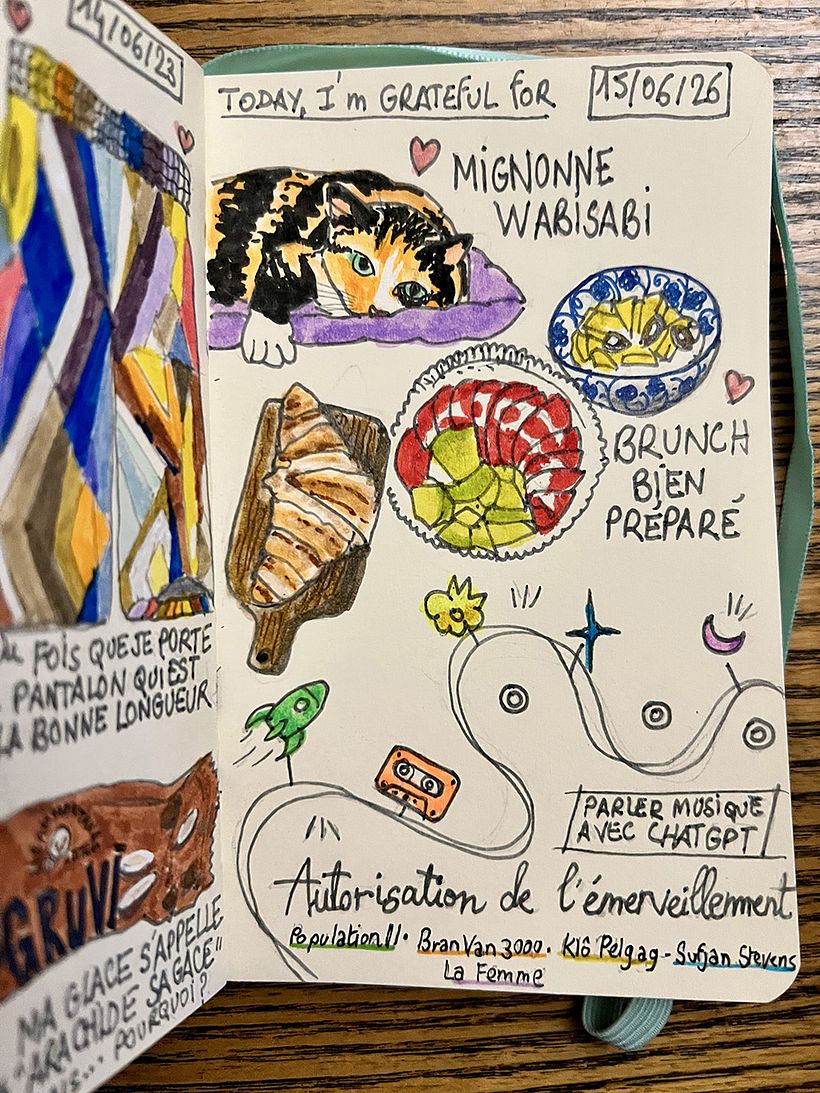 14/06/23
FOIS QUE JE PORTE
PANTALON QUI EST
LA BONNE LONGUEUR
GRUVI
MA GLACE S'APPELLE
POURQUOI?
TODAY, I'm GRATEFUL FOR
15/06/26
MIGNONNE
WABISABI
BRUNCH
BIEN
PRÉPARÉ
PARLER MUSIQUE
AVEC CHATGPT
Autorisation de l'émerveillement
Population II • Bran Van 3000 • Klô Pelgag - Sufjan Stevens
La Femme